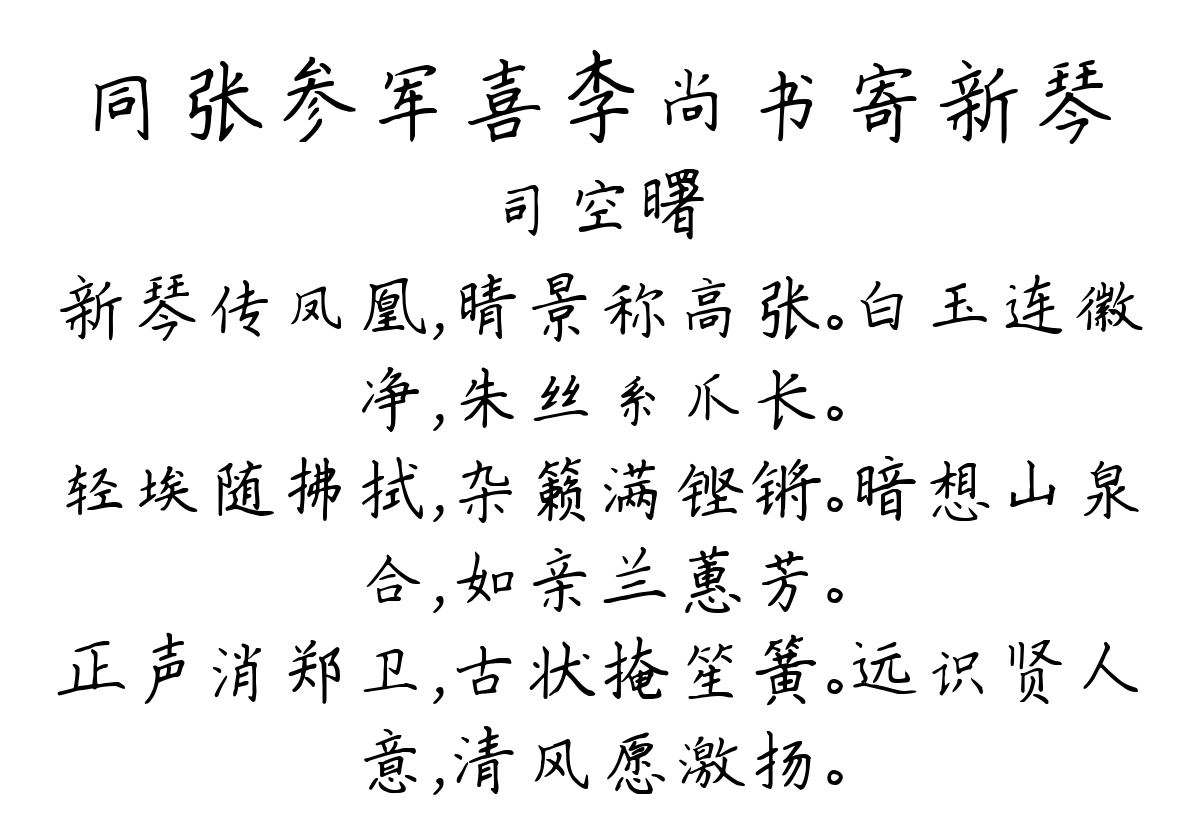 同张参军喜李尚书寄新琴
司空曙
新琴传凤凰,晴景称高张。白玉连徽
净,朱丝系爪长。
轻埃随拂拭,杂籁满铿锵。暗想山泉
合,如亲兰蕙芳。
正声消郑卫,古状掩笙簧。远识贤人
意,清风愿激扬。